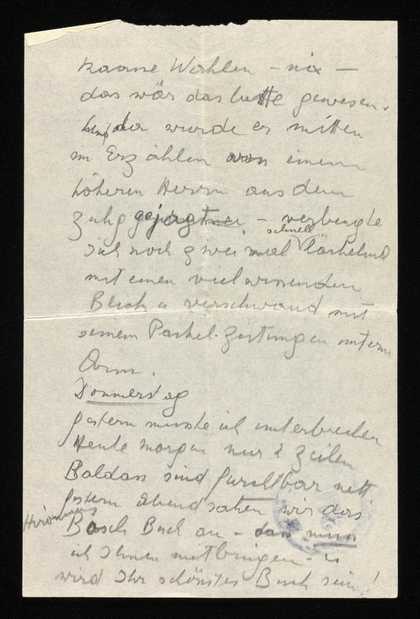 kaane Wahlen – nix –
das wär das beste gewesen.
da wurde er mitten
im Erzählen von einem
höheren Herrn aus dem
Zuhg gejagt – verbeugte
sich noch zweimal schnell lächelnd
mit einem vielwissenden
Blick u verschwand mit
seinem Packel Zeitungen unterm
Arm.
Donnerstag
gestern musste ich unterbrechen
Heute morgen nur 2 Zeilen
Baldass sind furchtbar nett
gestern Abend sahen wir das
Hieronimus
Bosch Buch an – das muss
ich Ihnen mitbringen – es
wird Ihr schönstes Buch sein!